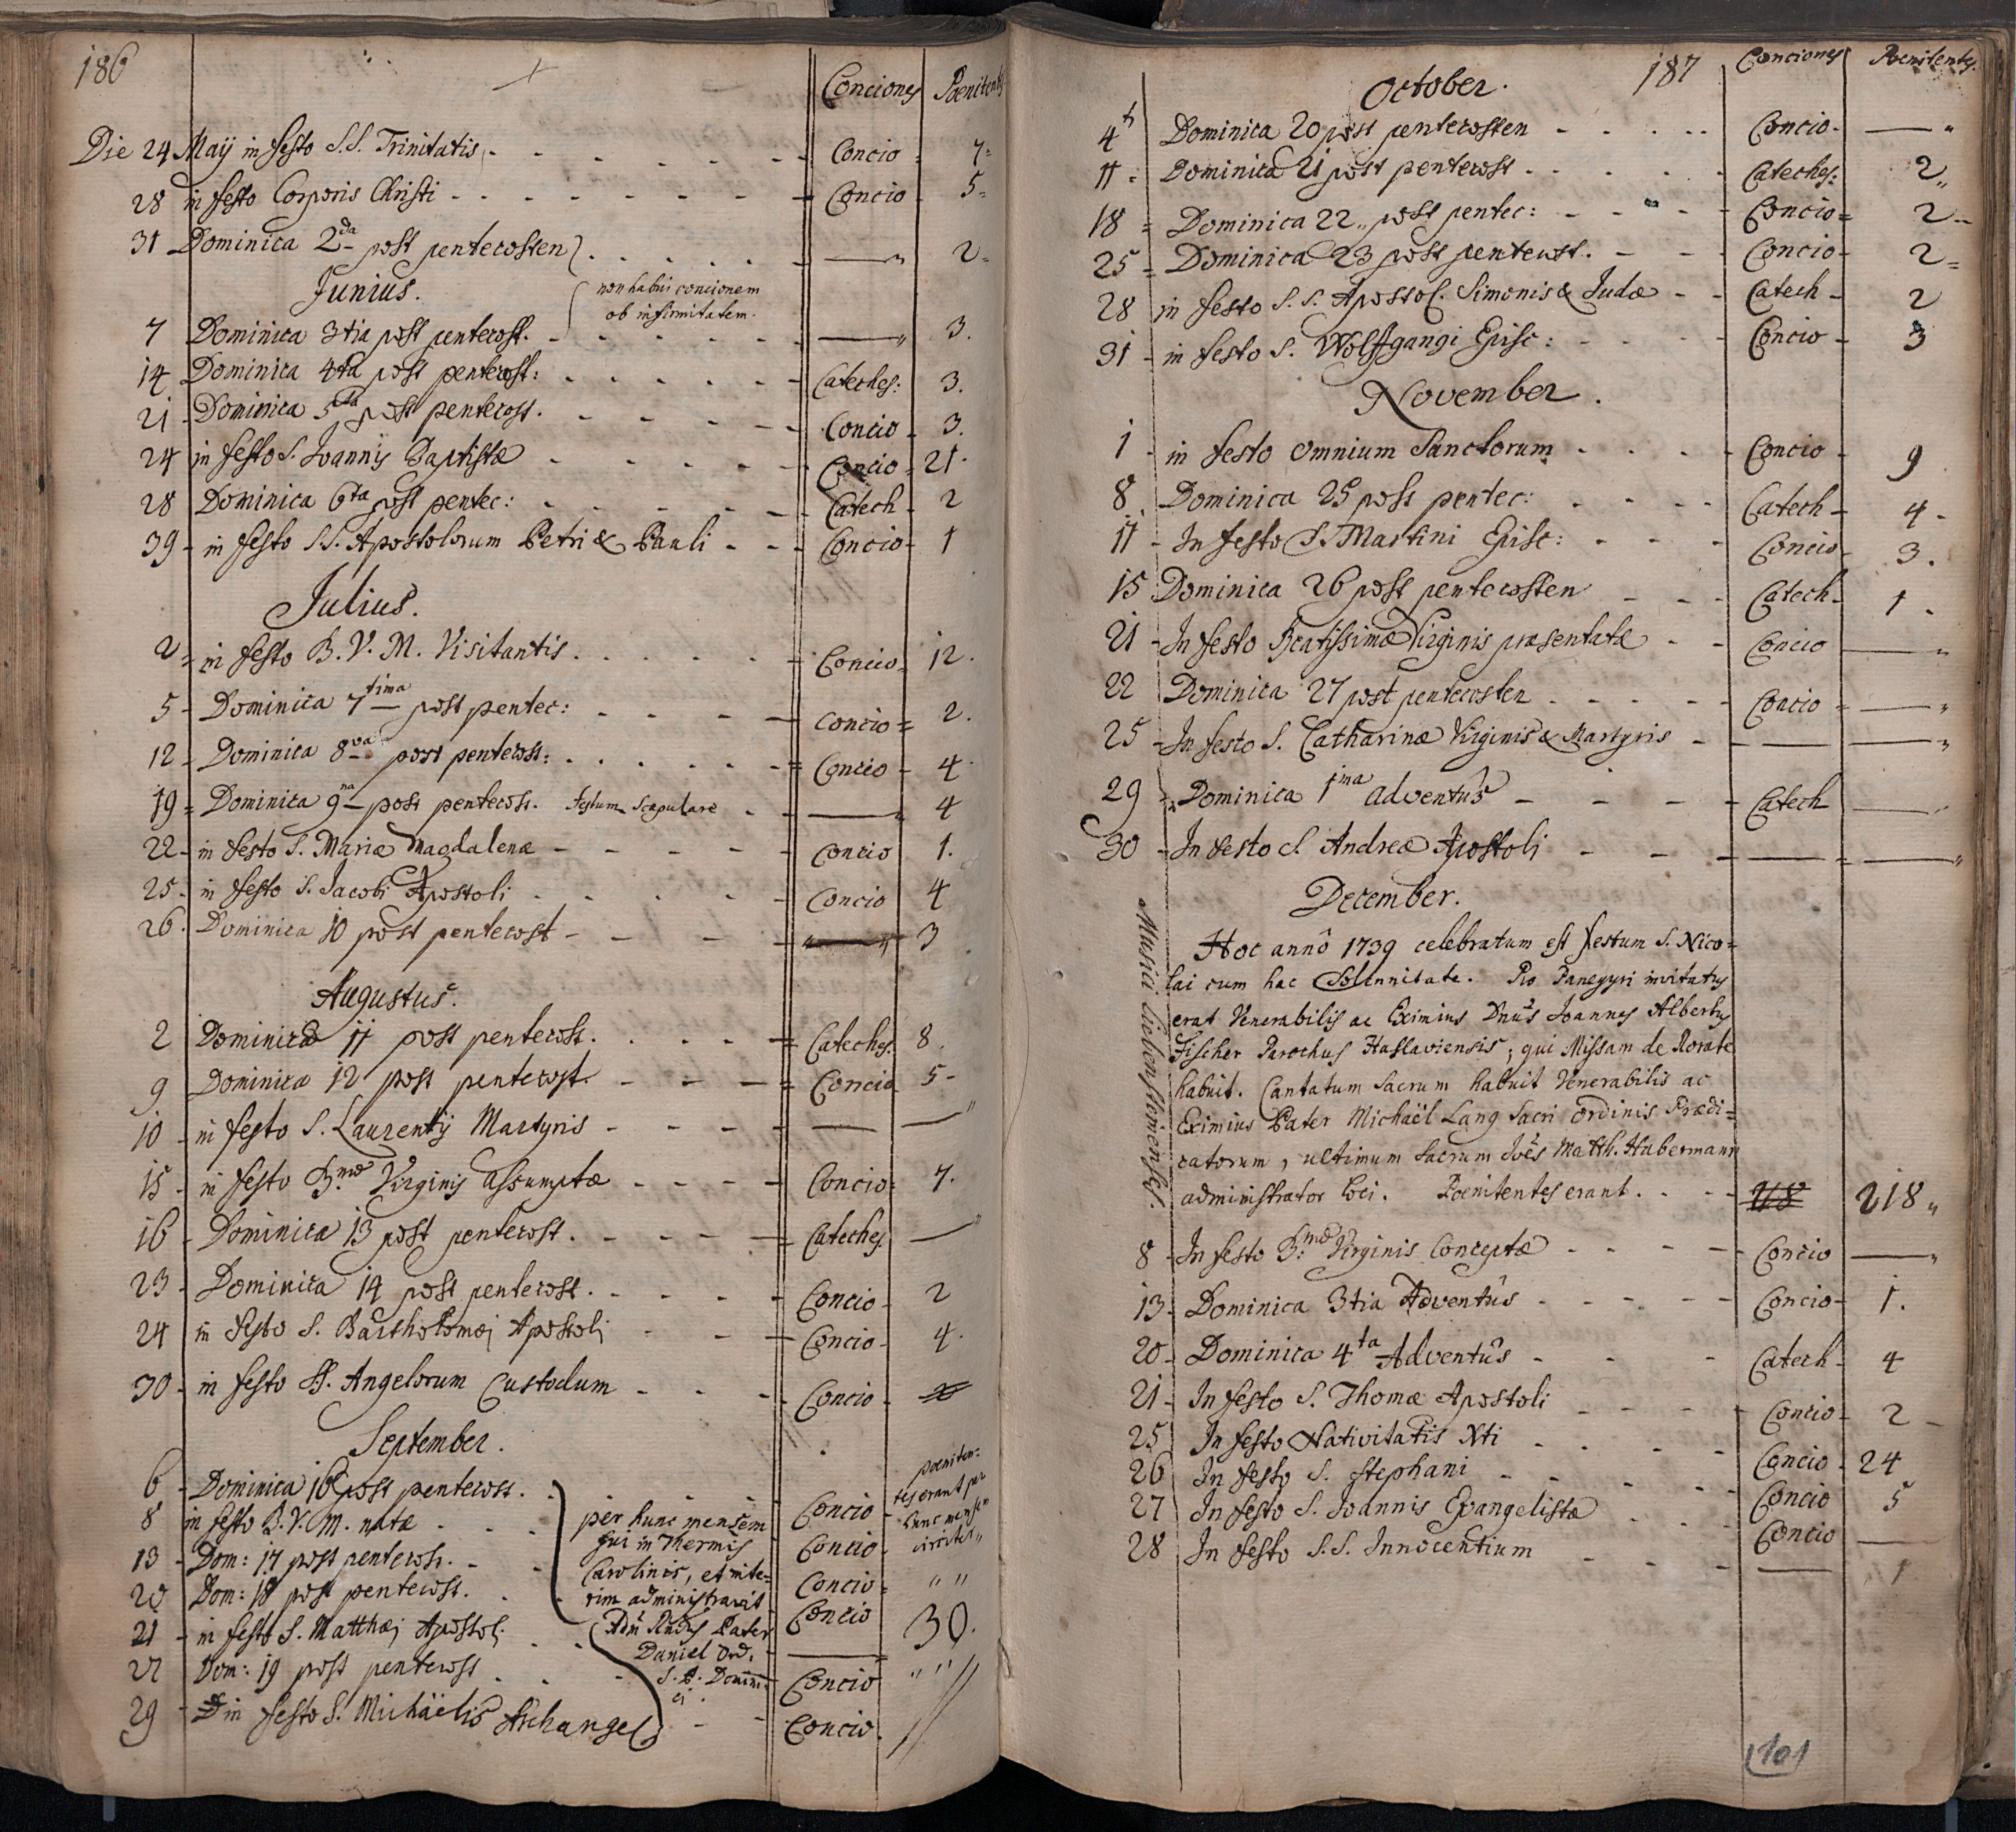 186
Conciones Poenitentes
Die 24 Maij in festo S.S. Trinitatis Concio 7
28 in festo Corporis Christi Concio 5
31 Dominica 2da post pentecosten 2
Junius.
non habui concionem
ob infirmitatem.
7 Dominica 3tia post pentecost. 3.
14 Dominica 4ta post pentecost: Cateches: 3.
21 Dominica 5ta post pentecost. Concio 3.
24 in festo S. Joannis Baptistæ Concio 21.
28 Dominica 6ta post pentec: Catech 2
39 in festo S.S. Apostolorum Petri & Pauli Concio 1
Julius.
2 in festo B. V. M. Visitantis Concio 12.
5 Dominica 7tima post pentec: Concio 2.
12 Dominica 8va post pentecost: Concio 4
19 Dominica 9na post pentecost. festum Scapulare 4
22 in festo S. Mariæ Magdalenæ Concio 1.
25 in festo S. Jacobi Apostoli Concio 4
26. Dominica 10 post pentecost 3
Augustus.
2 Dominica 11 post pentecost. Cateches. 8.
9 Dominica 12 post pentecost. Concio 5
10 in festo S. Laurentij Martyris
15 in festo B.mæ Virginis Assumptæ Concio 7.
16 Dominica 13 post pentecost. Cateches.
23 Dominica 14 post pentecost. Concio 2
24 in festo S. Bartholomæi Apostoli Concio 4.
30 in festo SS. Angelorum Custodum Concio
September.
6 Dominica 16 post pentecost. Concio
8 in festo B. V. M. natæ Concio
13 Dom: 17 post pentecost. Concio
20 Dom: 18 post pentecost. Concio
21 in festo S. Matthæi Apostoli
27 Dom: 19 post pentecost Concio
29 in festo S. Michäelis Archangeli Concio.
per hunc mensem
fui in Thermis
Carolinis, et inte=
rim administravit
Pater
Daniel Ord.
S. P. Domini=
ci.
poeniten=
tes erant per
hunc mensem
circiter
30.
187
October.
Conciones Poenitentes.
4 Dominica 20 post pentecosten Concio
11 Dominica 21 post pentecost. Cateches: 2
18 Dominica 22 post pentec: Concio 2
25 Dominica 23 post pentecost. Concio 2
28 in festo S.S. Apostol. Simonis & Judæ Catech 2
31 in festo S. Wolffgangi Episc: Concio 3
November.
1 in festo omnium Sanctorum Concio 9
8 Dominica 25 post pentec: Catech 4
11 In festo S. Martini Episc: Concio 3.
15 Dominica 26 post pentecosten Catech 1
21 In festo Beatissimæ Virginis præsentatæ Concio
22 Dominica 27 post pentecosten Concio
25 In festo S. Catharinæ Virginis & Martyris
29 Dominica 1ma Adventûs Catech
30 In festo S. Andreæ Apostoli
December.
Hoc annô 1739 celebratum est festum S. Nico=
lai cum hac Solennitate. Pro Panegyri invitatus
erat Venerabilis ac Eximius Dnûs Joannes Albertus
Fischer Parochus Haslaviensis; qui Missam de Rorate
habuit. Cantatum Sacrum habuit Venerabilis ac
Eximius Pater Michaël Lang Sacri Ordinis Prædi=
catorum, ultimum Sacrum Joês Matth. Habermann
administrator loci. Poenitentes erant. 218
Musici Liebensteinenses.
8 In festo B.mæ Virginis Conceptæ Concio
13 Dominica 3tia Adventûs Concio 1.
20 Dominica 4ta Adventûs Catech 4
21 In festo S. Thomæ Apostoli Concio 2
25 In festo Nativitatis Xti Concio 24
26 In festo S. Stephani Concio 5
27 In festo S. Joannis Evangelistæ Concio
28 In festo S.S. Innocentium 1
101